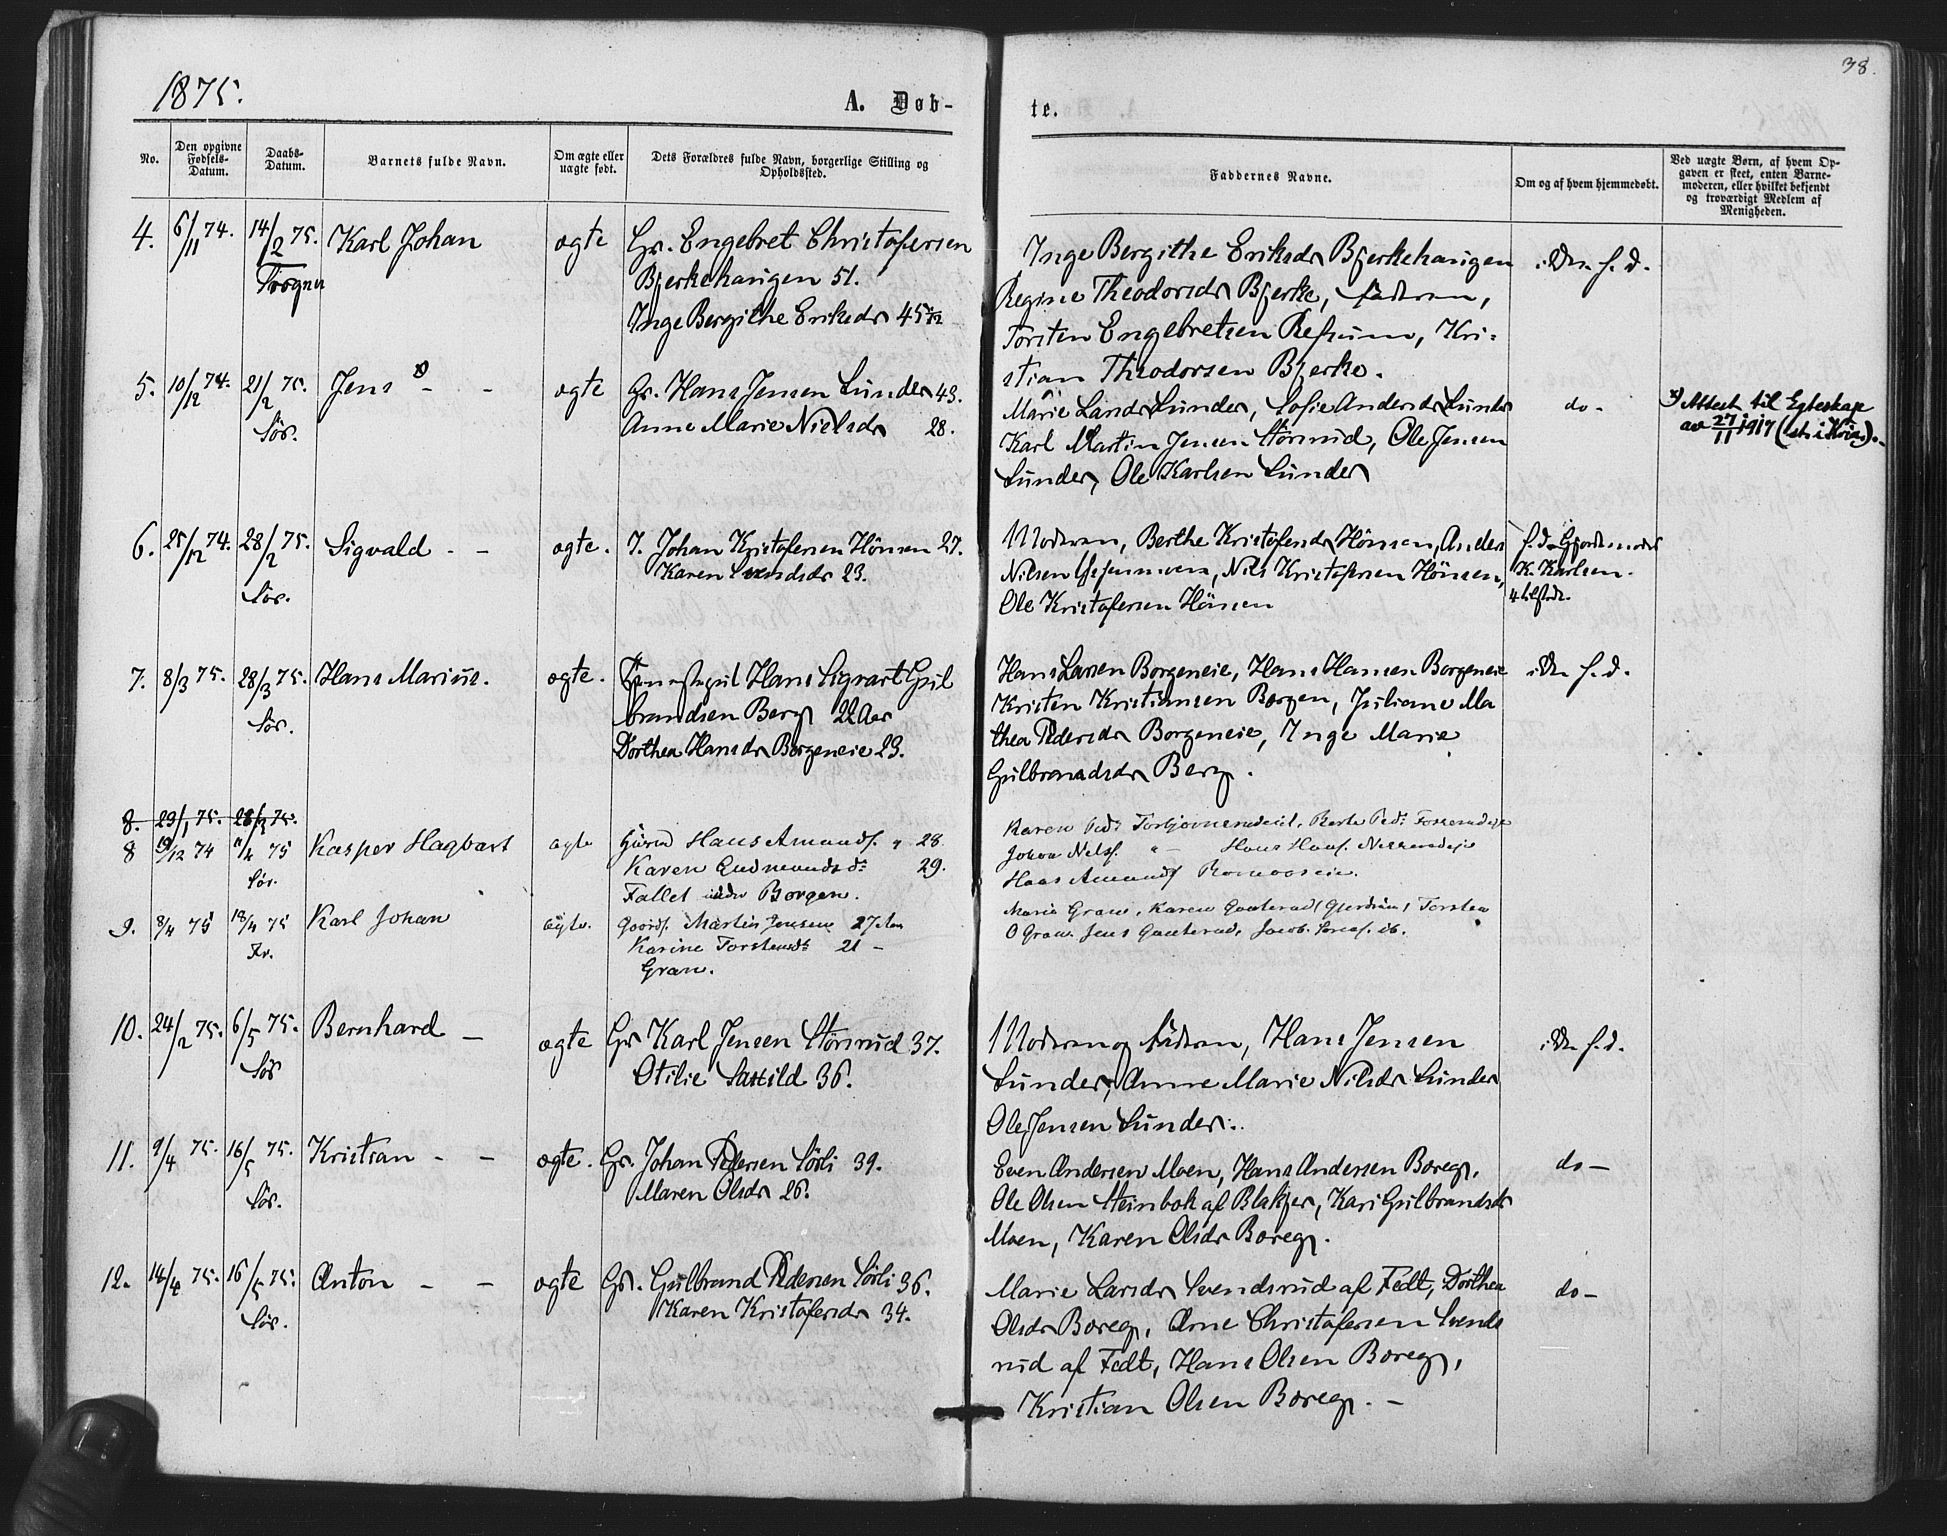 1875.
38.
A. Døb-
te.
No.
Den opgivne Fødsels-Datum.
Daabs-Datum.
Barnets fulde Navn.
Om ægte eller uægte født.
Dets Forældres fulde Navn, borgerlige Stilling og Opholdssted.
Faddernes Navne.
Om og af hvem hjemmedøbt.
Ved uægte Børn, af hvem Opgaven er skeet, enten Barnemoderen, eller hvilket bekjendt og troværdigt Medlem af Menigheden.
4. 6/11 74. 14/2 75. Karl Johan ægte Gr. Engebret Christofersen
Trogner Bjerkehaugen 51.
Inge Bergithe Eriksdr 45
Inge Bergithe Eriksdr Bjerkehaugen
Regine Theodorsdr Bjerke, faderen,
Torsten Engebretsen Refsum, Kri-
stian Theodorsen Bjerke.
f. d.
5. 10/12 74. 21/2 75. Jens - - ægte Gr. Hans Jensen Sunder 43.
Sør. Anne Marie Nielsdr 28.
Marie Larsdr Sunder, Sofie Andersdr Sunder
Karl Martin Jensen Størsrud, Ole Jensen
Sunder, Ole Karlsen Sunder
do -
Attest til Egteskap
av 27/11 1917
6. 25/12 74. 28/2 75. Sigvald - - ægte. I. Johan Kristofersen Hønsen 27.
Sør. Karen Svendsdr 23.
Moderen, Berthe Kristofersdr Hønsen, Anders
Nilsen, Nils Kristofersen Hønsen,
Ole Kristofersen Hønsen
f. d. Gjordemoder
K. Karlsen.
7. 8/3 75. 28/3 75. Hans Marius. ægte. Hans Sigvart Gul
Sør. brandsen Berg 22 Aar
Dorthea Hansdr Borgeneie 23.
Hans Larsen Borgeneie, Hans Hansen Borgeneie
Kristen Kristiansen Borgen, Juliane Ma
thea Pedersdr Borgeneie, Inge Marie
Gulbrandsdr Berg.
f. d.
8. 29/1 75. 28/3 75.
8 19/12 74 11/4 75 Kasper Hagbart ægte Hans Amunds. 28.
Sør. Karen Gudmundsdr 29.
Fallet under Borgen.
Karen Peds Berte Peds
Johan Nels. Hans Hans.
Hans Amunds
9. 8/4 75 18/4 75 Karl Johan ægte. Gaards. Martin Jensen 27 Aar
Fr. Karine Torstensdr 21 -
Gran.
Marie Gran, Karen Gauterud, Torsten
O Gran. Jens Gauterud, Jacob
10. 24/2 75. 6/5 75. Bernhard - ægte Gr Karl Jensen Størsrud 37.
Sør Otilie 36.
Moderen og faderen, Hans Jensen
Sunder, Anne Marie Nilsdr Sunder
Ole Jensen Sunder.
f. d.
11. 9/4 75. 16/5 75. Kristian - - ægte. Gr. Johan Pedersen Sørli 39.
Sør. Maren Olsdr 26.
Even Andersen Moen, Hans Andersen Boreg,
Ole Olsen Steinbok af Blakjer, Kari Gulbrandsdr
Moen, Karen Olsdr Boreg.
do -
12. 14/4 75. 16/5 75. Anton - - ægte Gr. Gulbrand Pedersen Sørli 36.
Sør. Karen Kristofersdr 34.
Marie Larsdr Svendsrud af Fedt, Dorthea
Olsdr Boreg, Arne Christofersen Svends
rud af Fedt, Hans Olsen Boreg,
Kristian Olsen Boreg. -
do -